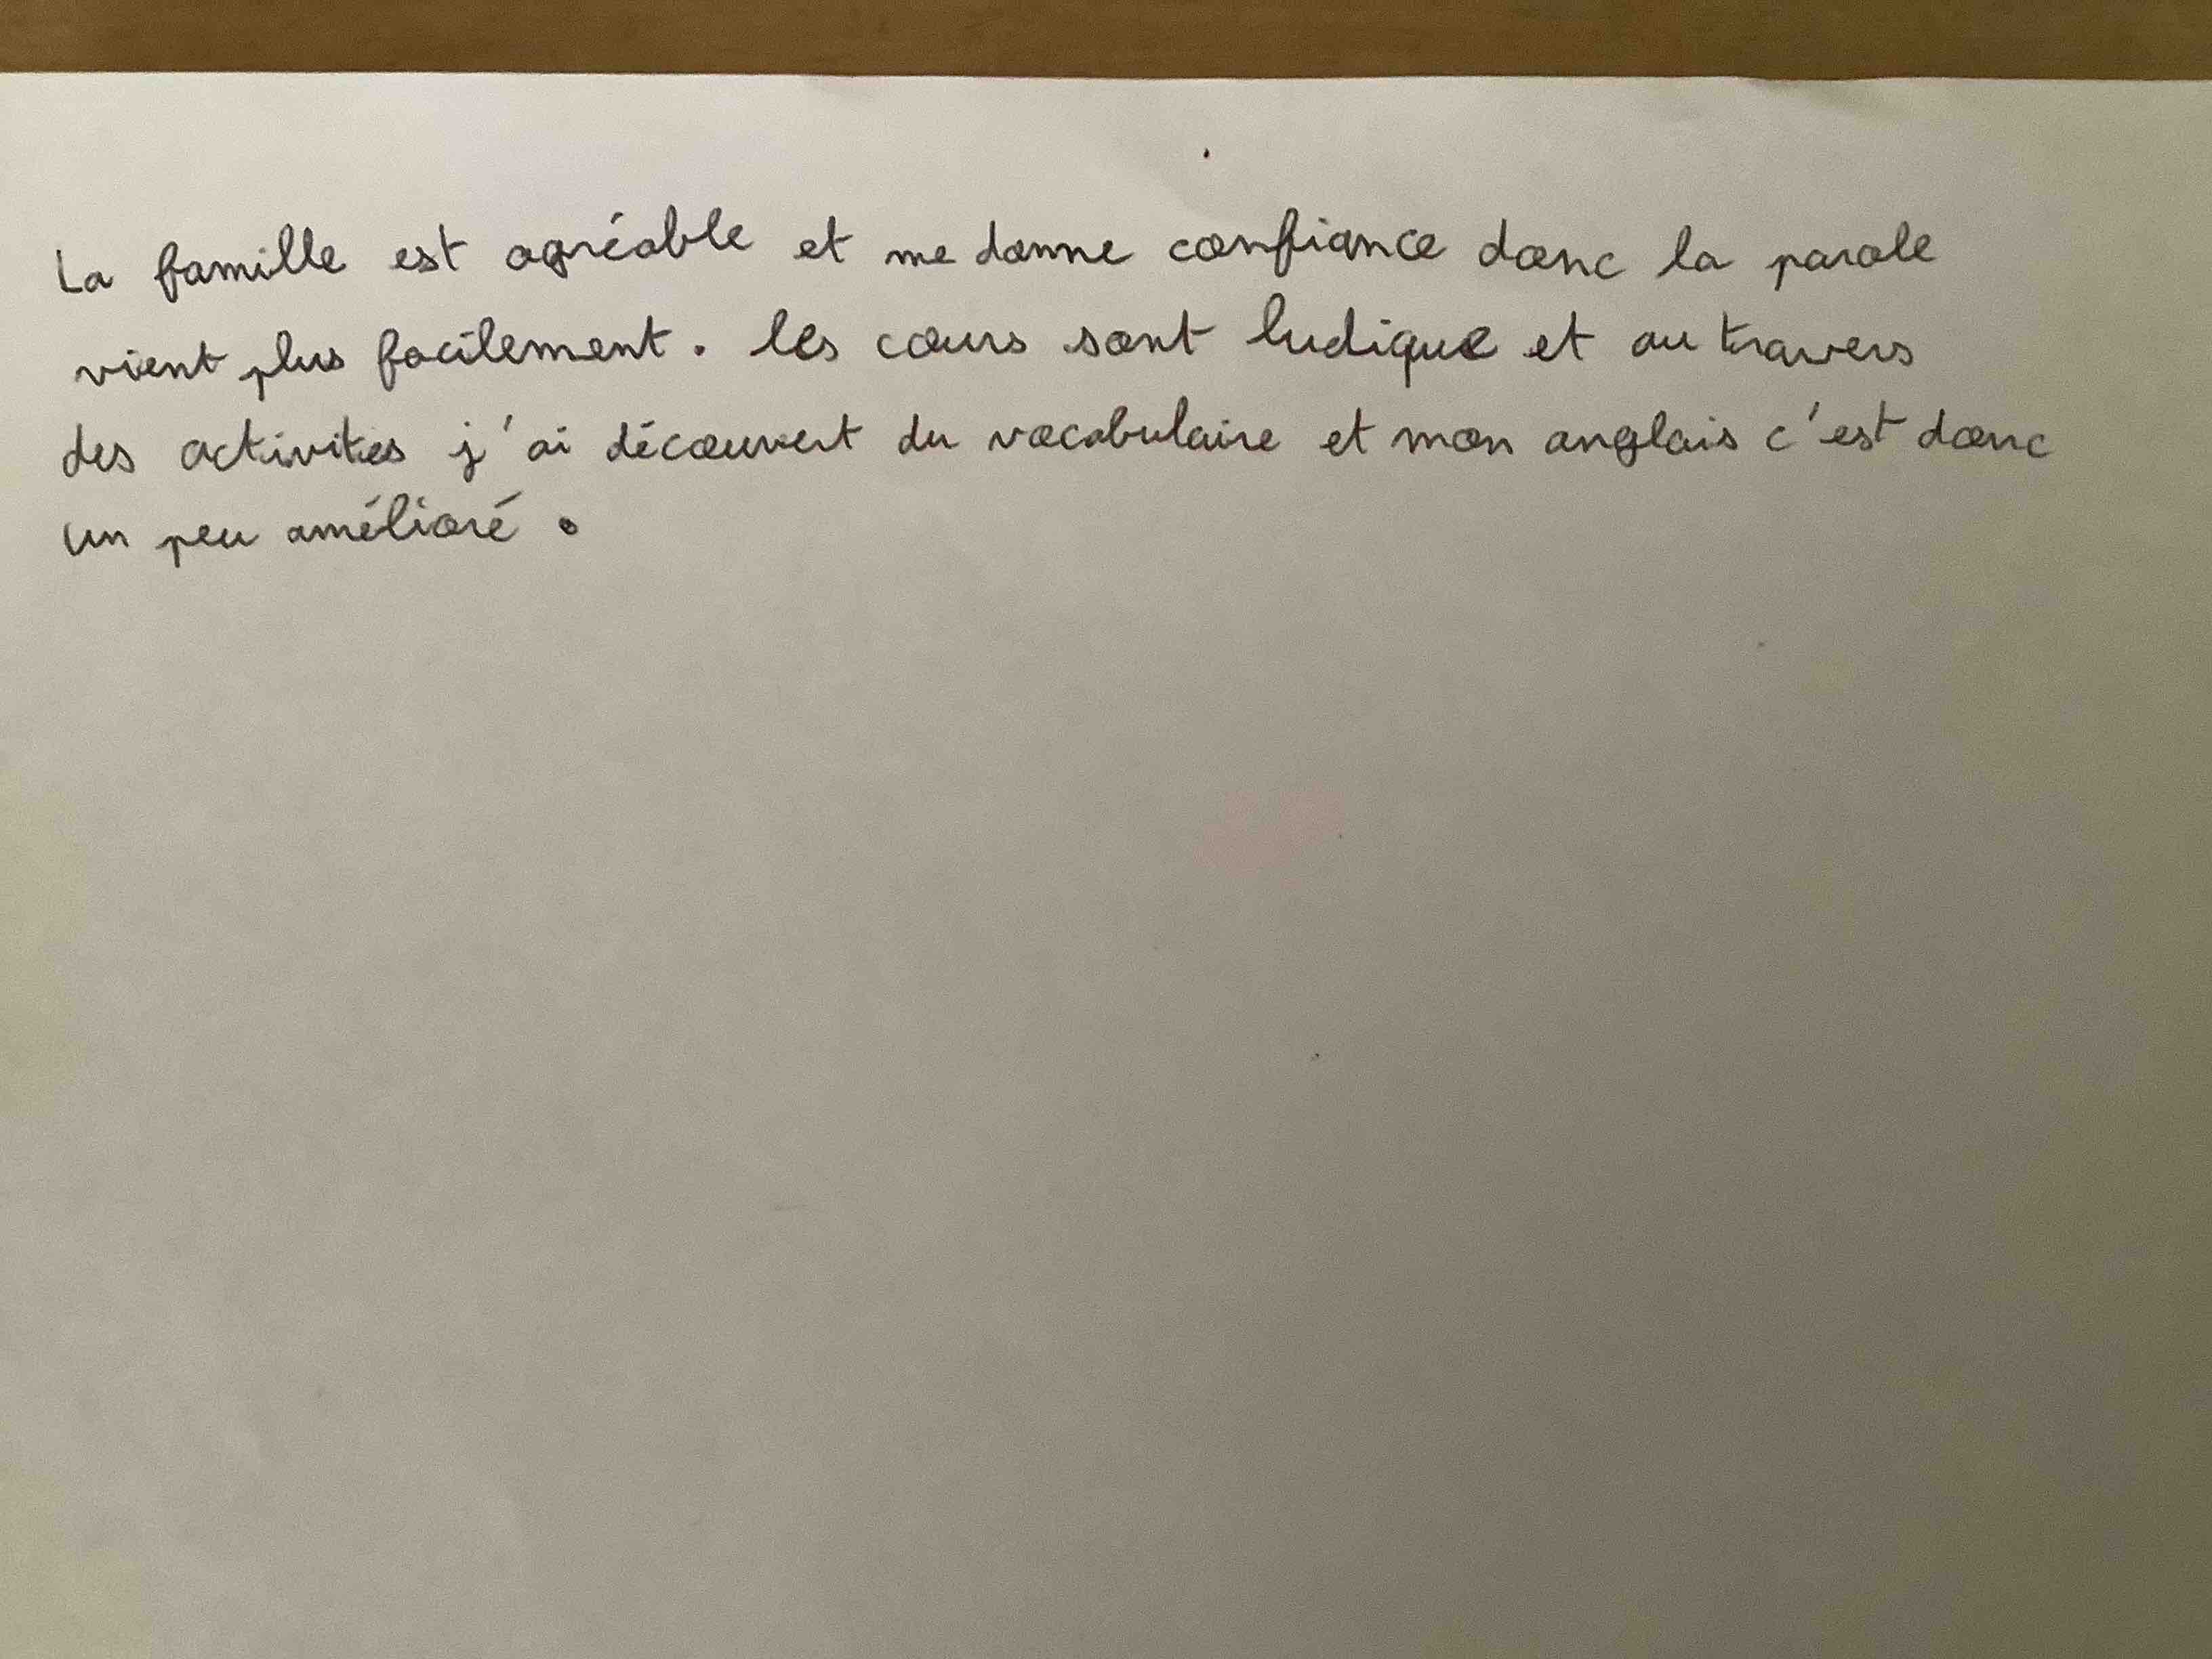 La famille est agréable et me donne confiance donc la parole
vient plus facilement. les cours sont ludique et au travers
des activités j'ai découvert du vocabulaire et mon anglais c'est donc
un peu amélioré.